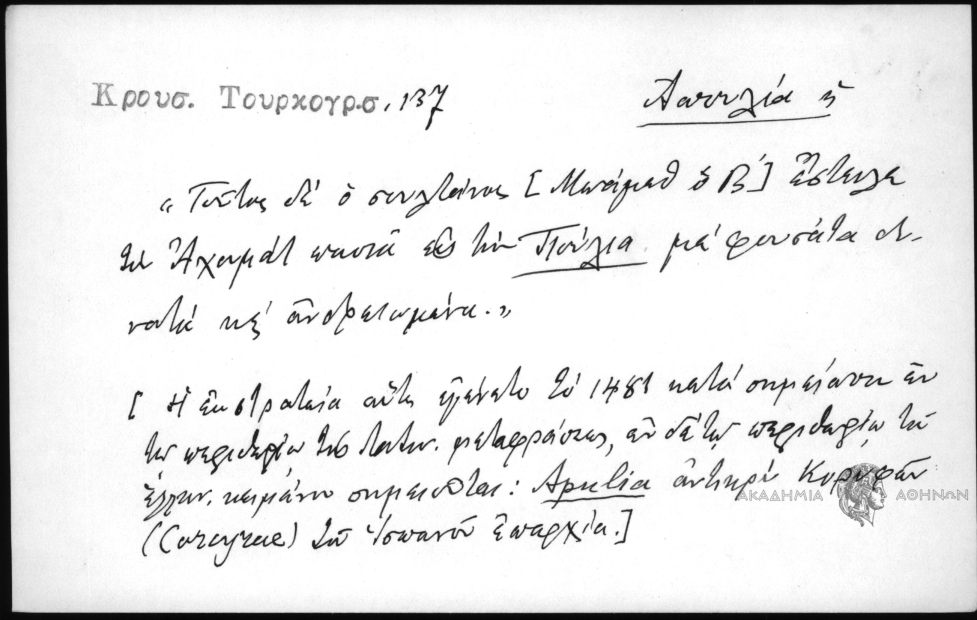 Κρουσ. Τουρκογρ.σ. 137
Ἀπουλία ἡ
« Τοῦτος δὲ ὁ σουλτάνος [Μωάμεθ ὁ Β΄] ἔστειλε
τὸν Ἀχουμάτ πασιᾶ εἰς τὴν Πούλια μὲ φουσάτα δυ-
νατὰ κὲ ἀνδρειωμένα. »
[ Ἡ ἐκστρατεία αὕτη ἐγένετο τὸ 1481 κατὰ σημείωσιν ἐν
τῷ περιθωρίῳ τῆς λατιν. μεταφράσεως, ἐν δὲ τῷ περιθωρίῳ τοῦ
ἑλλην. κειμένου σημειοῦται : Apulia ἀντικρὺ Κορυφῶν
(Corcyrae) τοῦ Ἱσπανοῦ ἐπαρχία.]
ΑΚΑΔΗΜΙΑ ΑΘΗΝΩΝ